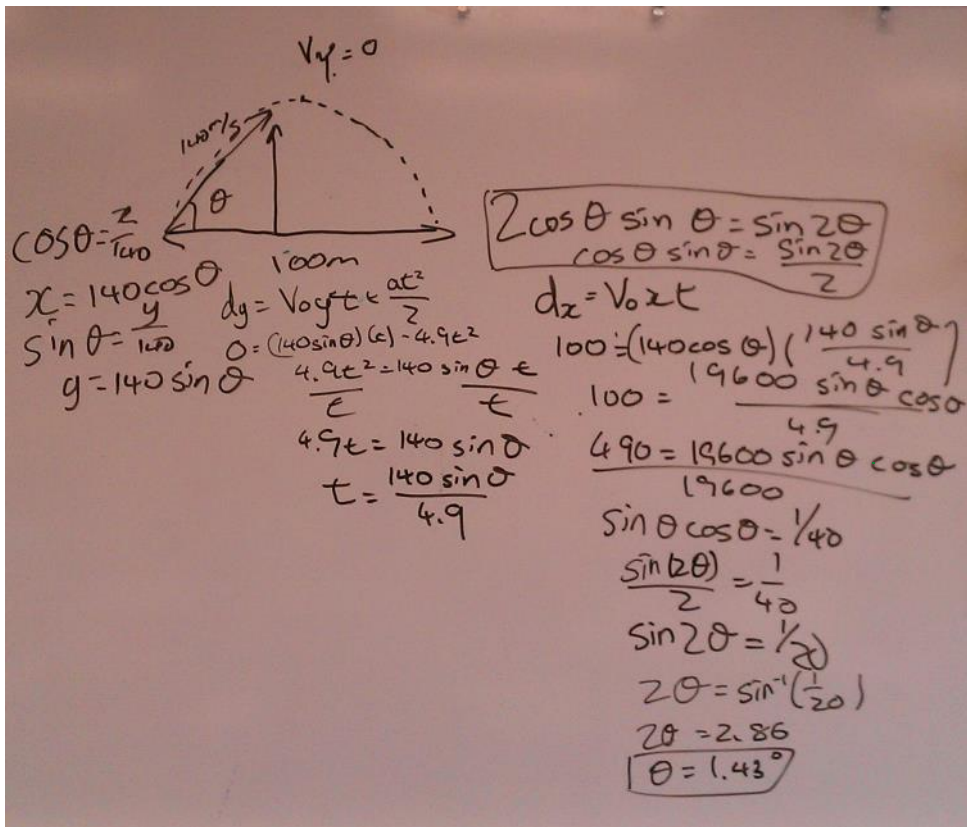 Vy = 0
140m/s
θ
100m
cosθ = x/140
x = 140cosθ
sinθ = y/140
y = 140 sinθ
dy = Voyt + at²/2
0 = (140sinθ)(t) - 4.9t²
4.9t² = 140 sinθ t
t t
4.9t = 140 sinθ
t = 140 sinθ/4.9
2cosθ sinθ = sin2θ
cosθ sinθ = sin2θ/2
dx = Voxt
100 = (140cosθ)(140 sinθ/4.9)
100 = 19600 sinθ cosθ/4.9
490 = 19600 sinθ cosθ
19600
sinθ cosθ = 1/40
sin(2θ)/2 = 1/40
sin2θ = 1/20
2θ = sin⁻¹(1/20)
2θ = 2.86
θ = 1.43°